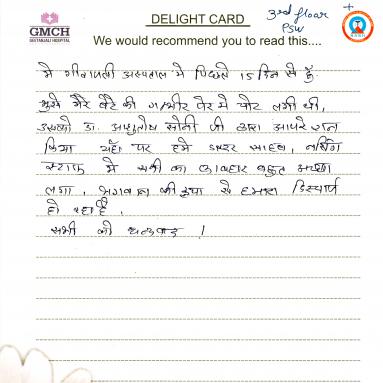 GMCH
GEETANJALI HOSPITAL
DELIGHT CARD
3rd floor
PSW
We would recommend you to read this....
मे गीतांजली अस्पताल मे पिछले 15 दिन से हूँ
मुझे मेरे बेटे की गम्भीर पेर मे चोट लगी थी,
उसको डा. आशुतोष सोनी जी द्वारा आपरेशन
किया यहाँ पर हमे डाक्टर साहब, नर्सिंग
स्टाफ मे सभी का व्यवहार बहुत अच्छा
लगा, भगवान की कृपा से हमारा डिस्चार्ज
हो रहा है,
सभी को धन्यवाद !